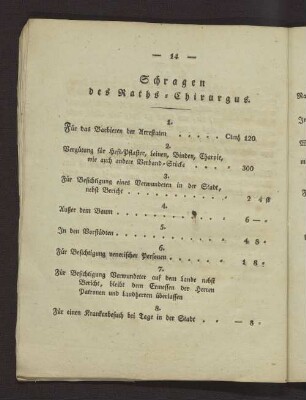 — 14 —
Schragen
des Raths-Chirurgus.
1.
Für das Barbieren der Arrestaten . . . . . Cimß 120.
2.
Vergütung für Heft-Pflaster, leinen, Binden, Charpie,
wie auch andere Verband-Stücke . . . . 300
3.
Für Besichtigung eines Verwundeten in der Stadt,
nebst Bericht . . . . . . . 2 4
4.
Ausser dem Baum . . . . . . 6 —
5.
In den Vorstädten . . . . . . 4 8
6.
Für Besichtigung venerischer Personen . . . . 1 8
7.
Für Besichtigung Verwundeter auf dem lande nebst
Bericht, bleibt dem Ermessen der Herren
Patronen und landherren überlassen
8.
Für einen Krankenbesuch bey Tage in der Stadt . . — 8